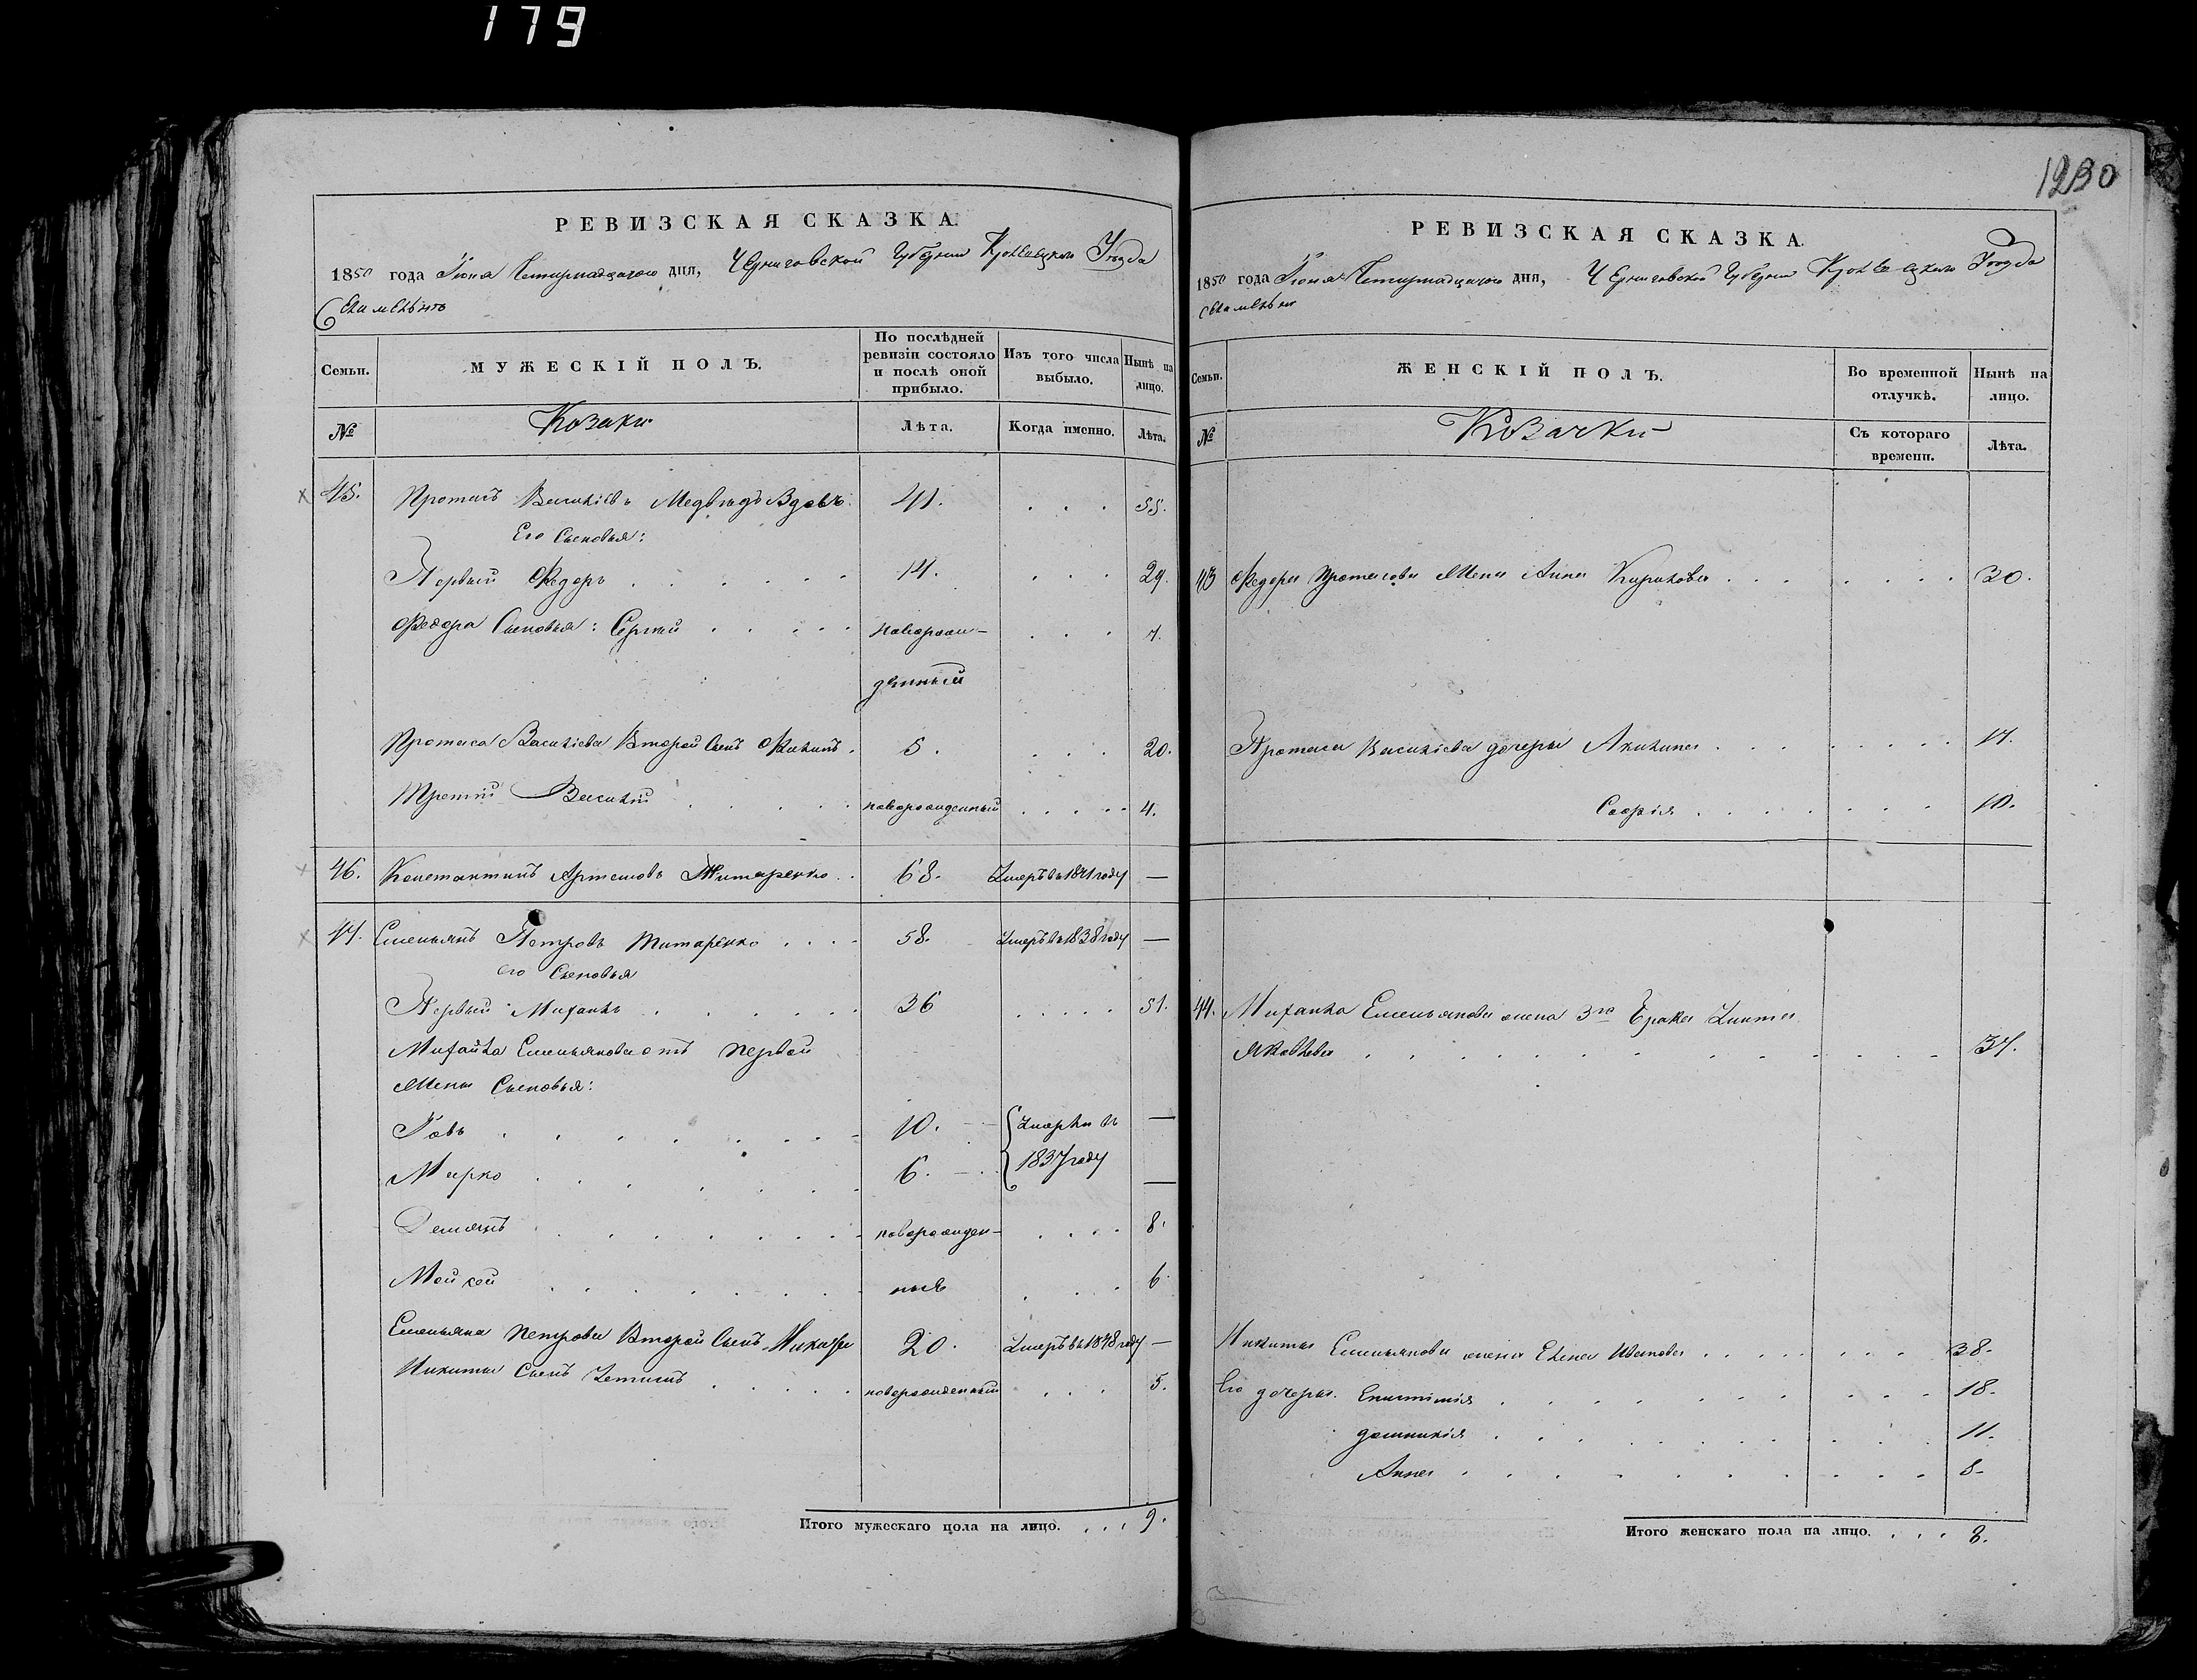 179
1230
РЕВИЗСКАЯ СКАЗКА.
1850 года Іюня Четырнадцатого дня, Черниговской Губерніи Кролевецкого Уезда
МУЖЕСКІЙ ПОЛЪ.
Семьи. №
Козаки
По послѣдней ревизіи состояло и послѣ оной прибыло.
Лѣта.
Изъ того числа выбыло.
Когда именно.
Нынѣ на лицо.
Лѣта.
45. Протасъ Василіевъ Медвѣдъ Вдовъ 41. . . . 55.
Его Сыновья:
Первый Федоръ . . . 14. . . . 29.
Федора Сыновья: Сергий . . . новорож-
денный . . . 7.
Протаса Василіева Второй Сынъ Филипъ. 5. . . . 20.
Третій Василій . . . новорожденный . . . 4.
46. Константинъ Артемовъ Титаренко . . 68. Умеръ въ 1841 году —
47. Емельянъ Петровъ Титаренко . . . . 58. Умеръ въ 1838 году —
его Сыновья
Первый Михайло . . . 36 . . . 51.
Михайла Емельянова отъ первой
Жены Сыновья:
Іовъ . . . 10. — Умерли въ —
Марко . . . 6. — 1837 году —
Демянъ . . . новорожден- . . . 8.
Мойсей . . . ные . . . 6
Емельяна Петрова Второй Сынъ Никита 20. Умеръ въ 1848 году —
Никиты Сынъ . . . новорожденный . . . 5.
Итого мужескаго пола на лицо. . . . 9.
РЕВИЗСКАЯ СКАЗКА.
1850 года Іюня Четырнадцатого дня, Черниговской Губерніи Кролевецкого Уезда
Семьи. №
ЖЕНСКІЙ ПОЛЪ.
Козачки
Во временной отлучкѣ.
Съ котораго времени.
Нынѣ на лицо.
Лѣта.
Федора Протасова Жена Анна Кирилова . . . 30.
Протаса Василіева дочери Акилина . . . 17.
Софія . . . 10.
44. Михайла Емельянова жена 3го Брака
Яковлева . . . 37.
Никиты Емельянова жена Елена Иванова . . . 38.
Его дочери. Епистимія . . . 18.
Домникія . . . 11.
Анна . . . 8.
Итого женскаго пола на лицо. . . . 8.